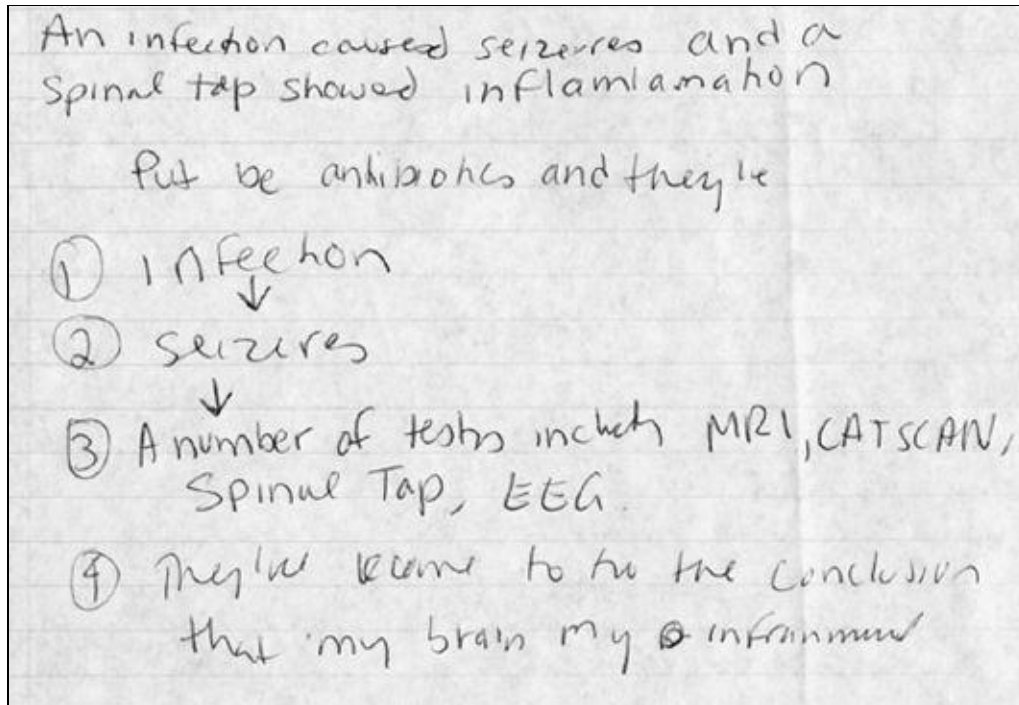 An infection caused seizerres and a
Spinal tap showed inflamlamation
Put be antibiotics and they're
① infection
↓
② seizeres
↓
③ A number of tests MRI, CATSCAN,
Spinal Tap, EEG
④ They've to the conclusion
that my brain my